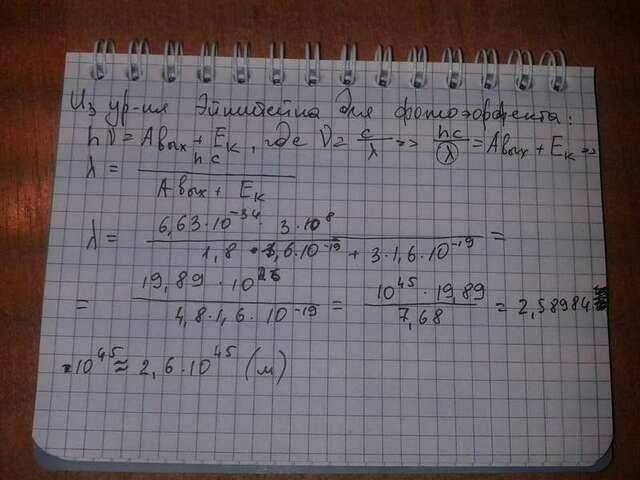 Из ур-ния Эйнштейна для фотоэффекта:
hν = Aвых + Eк, где ν = c/λ => hc/λ = Aвых + Eк =>
λ = hc/(Aвых + Eк)
λ = (6,63·10^-34 · 3·10^8)/(1,8 · 1,6·10^-19 + 3·1,6·10^-19) =
= (19,89·10^26)/(4,8·1,6·10^-19) = (10^45 · 19,89)/7,68 = 2,58984
·10^45 ≈ 2,6·10^45 (м)